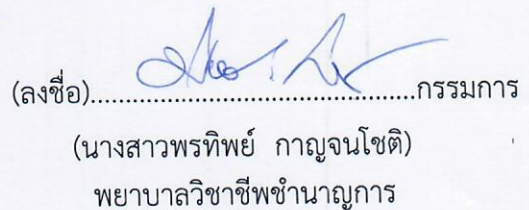 (ลงชื่อ)......................................................กรรมการ
(นางสาวพรทิพย์ กาญจนโชติ)
พยาบาลวิชาชีพชำนาญการ